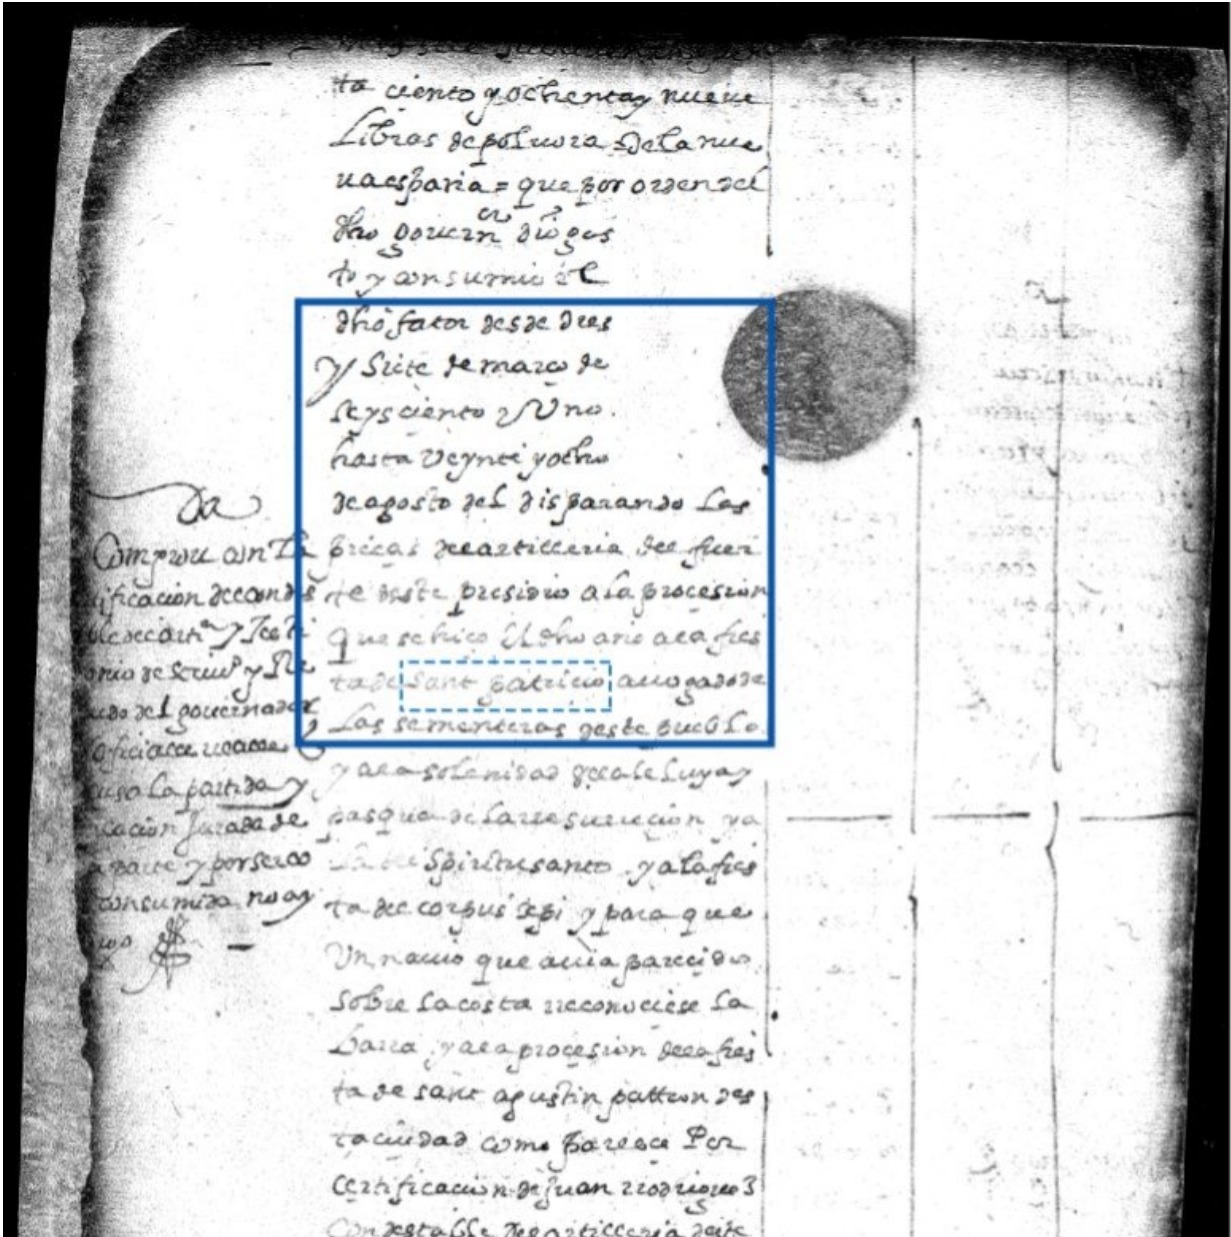 ta ciento y ochenta y nueve
Libras de polvora de la nue
va españa = que por orden del
dho governor dio gas
to y consumio el
dho fator desde dies
y Siete de março de
seysciento y Uno
hasta Veynte y ocho
de agosto del disparando Las
pieças de artilleria del fuer
te deste presidio a la procesion
que se hiço el dho año a la fies
ta de sant patricio avogado de
Las sementeras deste pueblo
y a la solenidad de aleluya y
pasqua de la rresurecion y a
La del Spiritu santo y a la fies
ta de corpus xpi y para que
Un navio que avia parecido
sobre la costa rreconociese la
barra y a la procesion de la fies
ta de sant agustin patron des
ta ciudad como parece Por
Certificacion de Juan rrodrigues
Condestable de artilleria deste
Comprou con la
tificacion del condes
y Testi
onio de scriv y Re
udo del governador
oficiales
la partida y
icacion Jurada de
parte y por se aver
consumido no ay